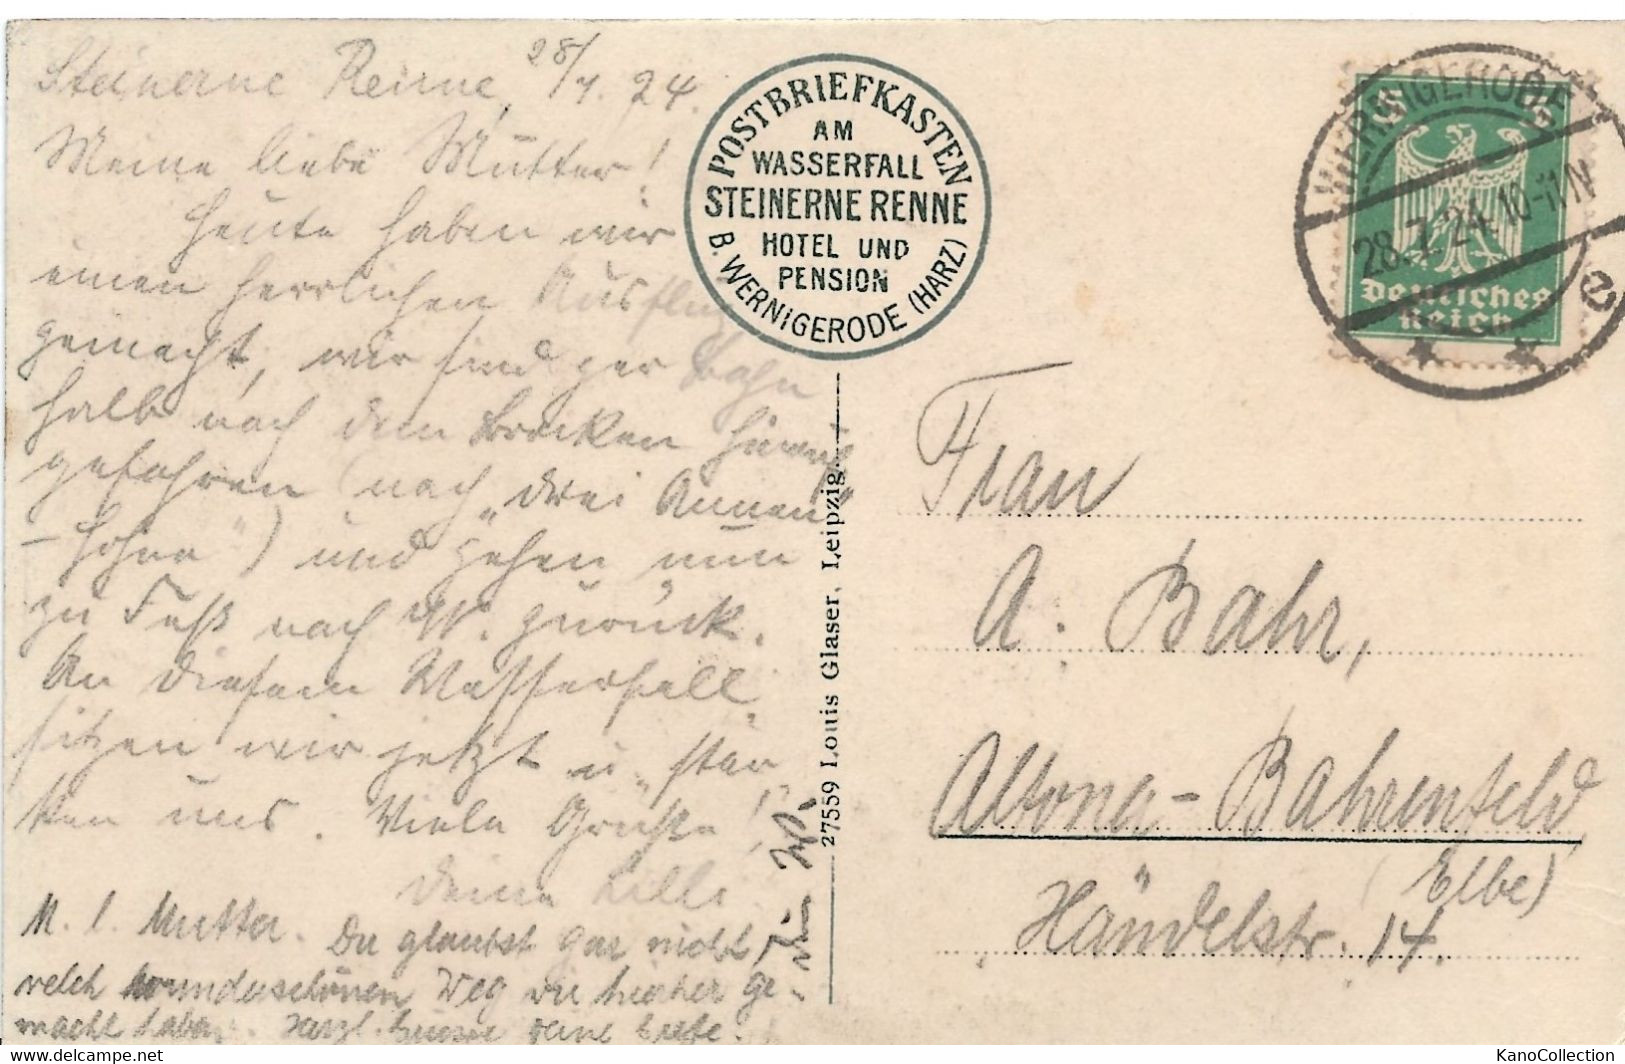 Steinerne Renne, 28/7. 24.
Meine liebe Mutter!
Heute haben wir
einen herrlichen Ausflug
gemacht, wir sind per Bahn
halb nach dem Brocken hinauf
gefahren (nach „drei Annen"
- Hohne") und gehen nun
zu Fuß nach W. zurück.
An diesem Wasserfall
sitzen wir jetzt u. stär
ken uns. Viele Grüße!
Deine Lilli
M. l. Mutter. Du glaubst gar nicht,
welch wunderschönen Weg wir hierher ge-
macht haben. Herzl. Grüsse
POSTBRIEFKASTEN
AM
WASSERFALL
STEINERNE RENNE
HOTEL UND
PENSION
B. WERNIGERODE (HARZ)
27559 Louis Glaser, Leipzig.
WERNIGERODE
28.7.24. 10-11 N
e
5 5
Deutsches
Reich
Frau
A. Bahr,
Altona-Bahrenfeld
(Elbe)
Händelstr. 14.
KanoCollection
www.delcampe.net